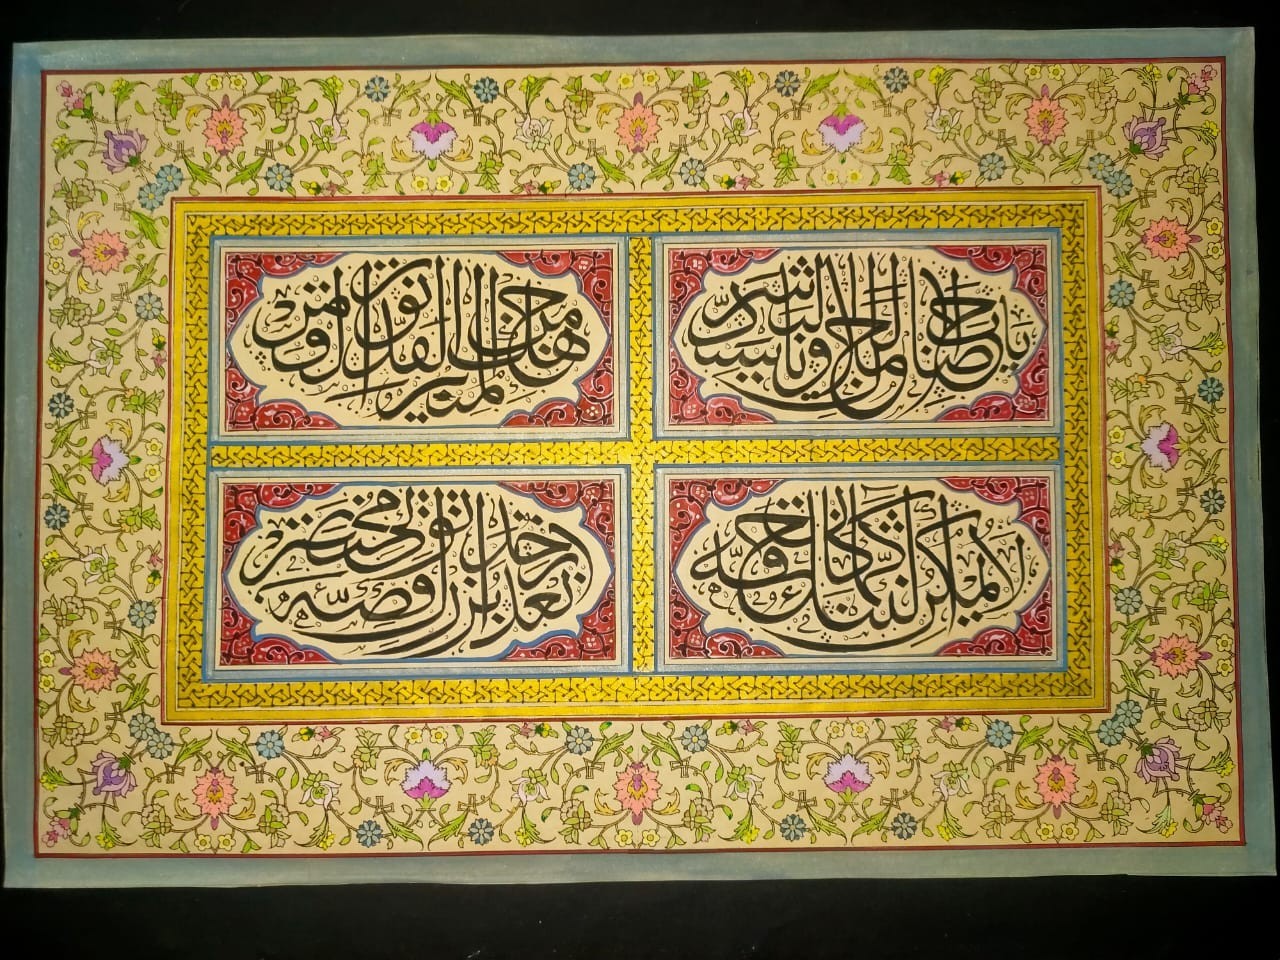 يا صاحب الجمال ويا سيد البشر
من وجهك المنير لقد نور القمر
لا يمكن الثناء كما كان حقه
بعد از خدا بزرگ توئی قصه مختصر